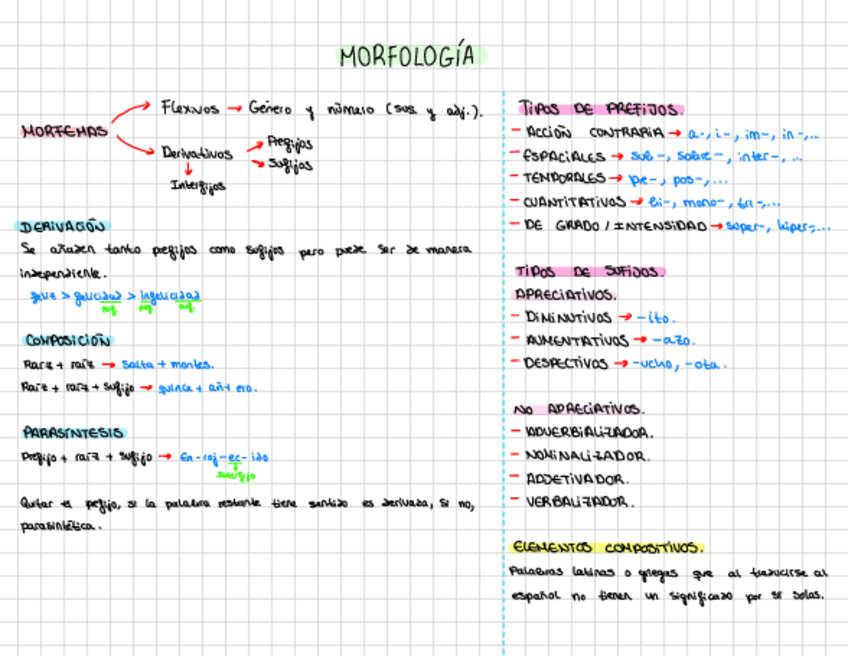 MORFOLOGÍA
MORFEMAS
Flexivos → Género y número (sus. y adj.).
Derivativos
→ Prefijos
→ Sufijos
Interfijos
DERIVACIÓN
Se añaden tanto prefijos como sufijos pero puede ser de manera
independiente.
feliz > felicidad > infelicidad
suf. pref. suf.
COMPOSICIÓN
Raíz + raíz → Salta + montes.
Raíz + raíz + sufijo → quince + añ + ero.
PARASÍNTESIS
Prefijo + raíz + sufijo → En-roj-ec-ido
Interfijo
Quitar el prefijo, si la palabra restante tiene sentido es derivada, si no,
parasintética.
TIPOS DE PREFIJOS.
- ACCIÓN CONTRARIA → a-, i-, im-, in-,...
- ESPACIALES → sub-, sobre-, inter-, ...
- TEMPORALES → pre-, pos-,...
- CUANTITATIVOS → bi-, mono-, tri-,...
- DE GRADO / INTENSIDAD → super-, hiper-,...
TIPOS DE SUFIJOS.
APRECIATIVOS.
- DIMINUTIVOS → -ito.
- AUMENTATIVOS → -azo.
- DESPECTIVOS → -ucho, -ota.
NO APRECIATIVOS.
- ADVERBIALIZADOR.
- NOMINALIZADOR.
- ADJETIVADOR.
- VERBALIZADOR.
ELEMENTOS COMPOSITIVOS.
Palabras latinas o griegas que al traducirse al
español no tienen un significado por sí solas.